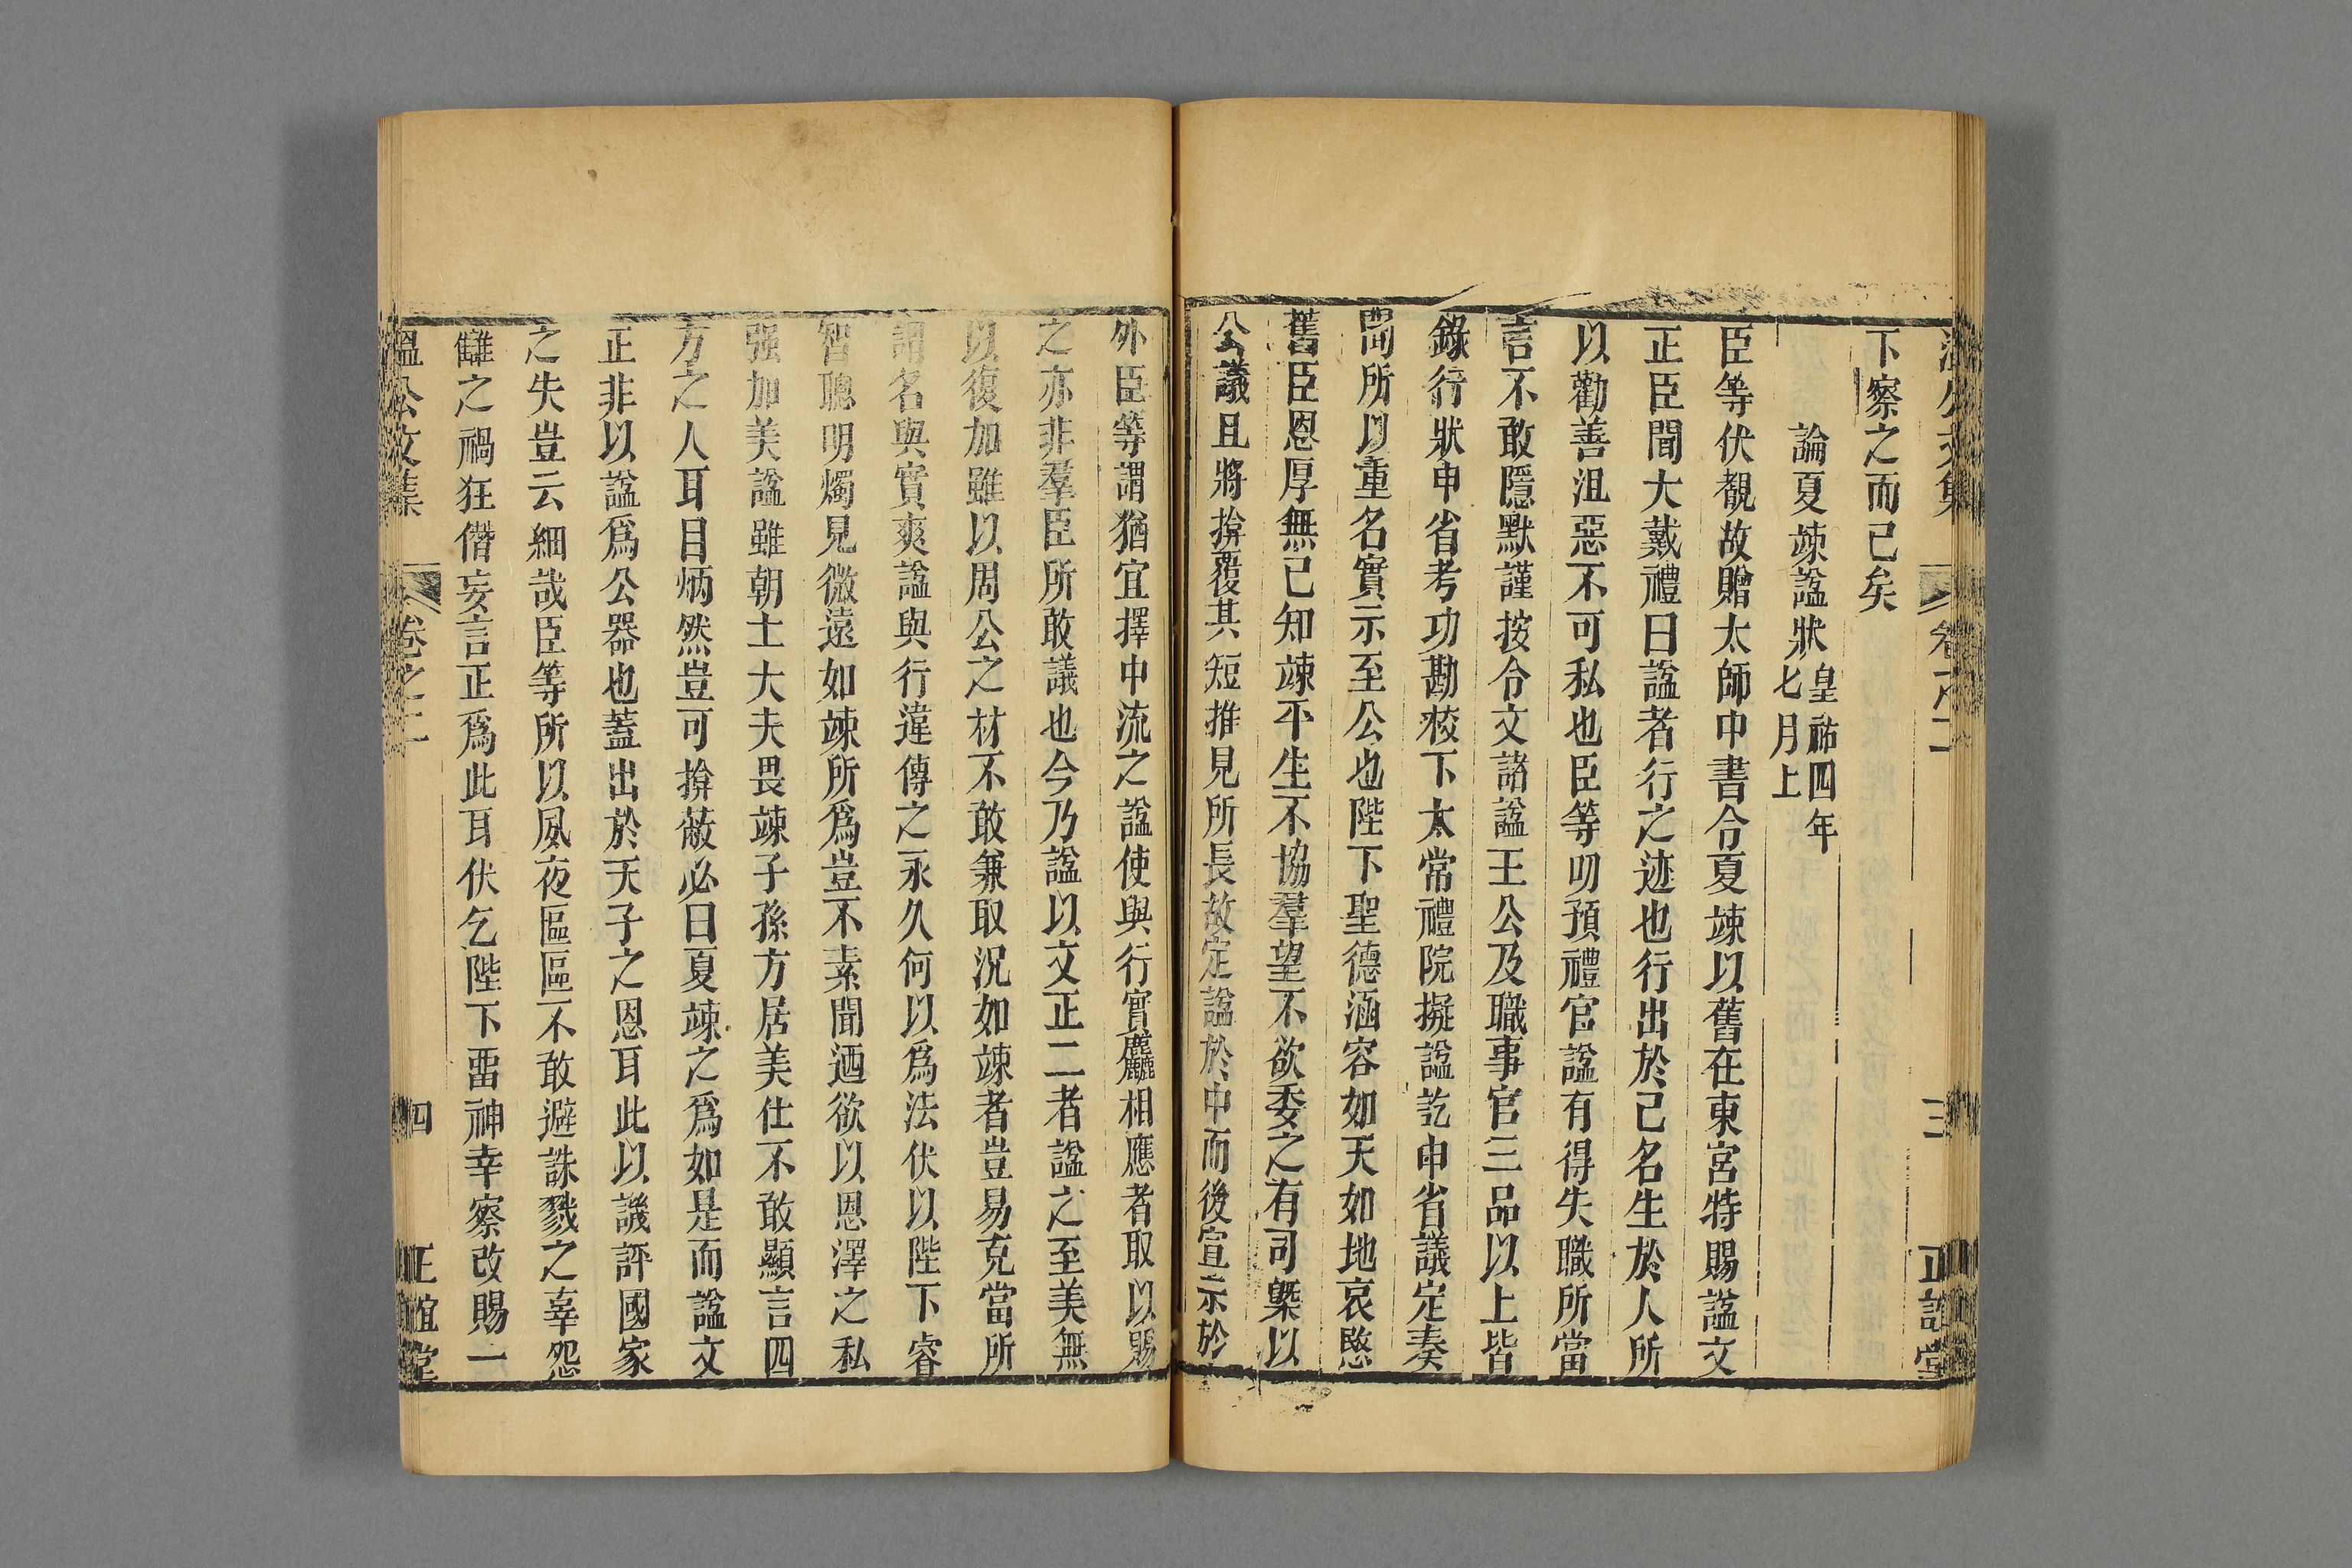 溫公文集 卷之二 三 正誼堂
下察之而已矣
論夏竦諡狀 皇祐四年
七月上
臣等伏覩故贈太師中書令夏竦以舊在東宮特賜諡文
正臣聞大戴禮曰諡者行之迹也行出於己名生於人所
以勸善沮惡不可私也臣等叨預禮官諡有得失職所當
言不敢隱默謹按令文諸諡王公及職事官三品以上皆
錄行狀申省考功勘校下太常禮院擬諡訖申省議定奏
聞所以重名實示至公也陛下聖德涵容如天如地哀愍
舊臣恩厚無已知竦平生不協羣望不欲委之有司槩以
公議且將揜覆其短推見所長故定諡於中而後宣示於
外臣等謂猶宜擇中流之諡使與行實麤相應者取以賜
之亦非羣臣所敢議也今乃諡以文正二者諡之至美無
以復加雖以周公之材不敢兼取況如竦者豈易克當所
謂名與實爽諡與行違傳之永久何以爲法伏以陛下睿
智聰明燭見微遠如竦所爲豈不素聞迺欲以恩澤之私
强加美諡雖朝士大夫畏竦子孫方居美仕不敢顯言四
方之人耳目炳然豈可揜蔽必曰夏竦之爲如是而諡文
正非以諡爲公器也蓋出於天子之恩耳此以譏評國家
之失豈云細哉臣等所以夙夜區區不敢避誅戮之辜怨
讎之禍狂僭妄言正爲此耳伏乞陛下畱神幸察改賜一
溫公文集 卷之二 四 正誼堂